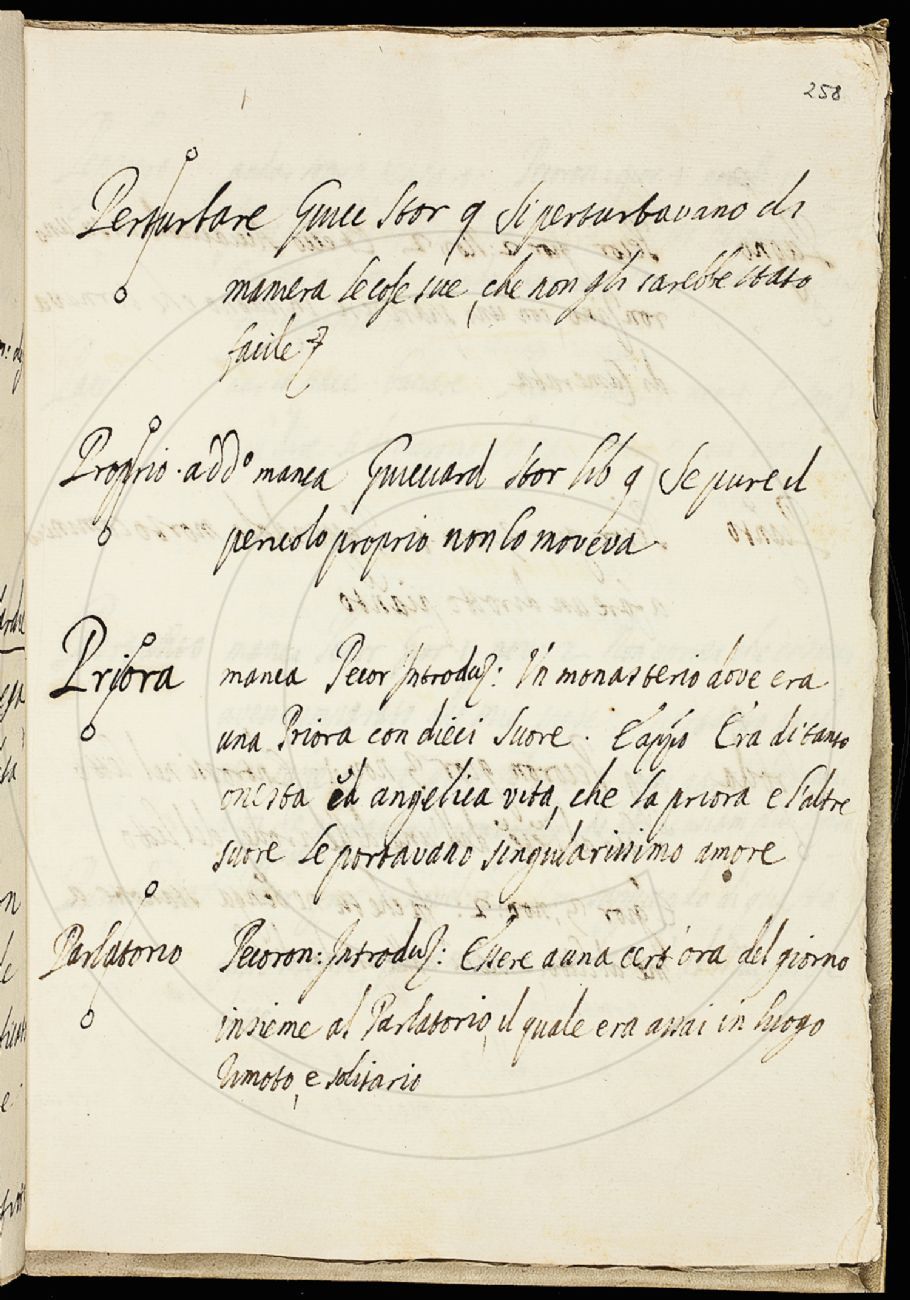 258
Perturbare Guicc Stor 9 Si perturbavano di
maniera le cose sue, che non gli sarebbe stato
facile
Proprio. add.o manca Guicciard Stor lib 9 Se pure il
pericolo proprio non lo moveva.
Priora manca Pecor Introduz: In monasterio dove era
una Priora con dieci Suore. E app.o Era di tanto
onesta ed angelica vita, che la priora e l'altre
suore le portavano singularissimo amore
Parlatorio Pecoron: Introduz: Essere a una cert'ora del giorno
insieme al Parlatorio, il quale era assai in luogo
rimoto, e solitario